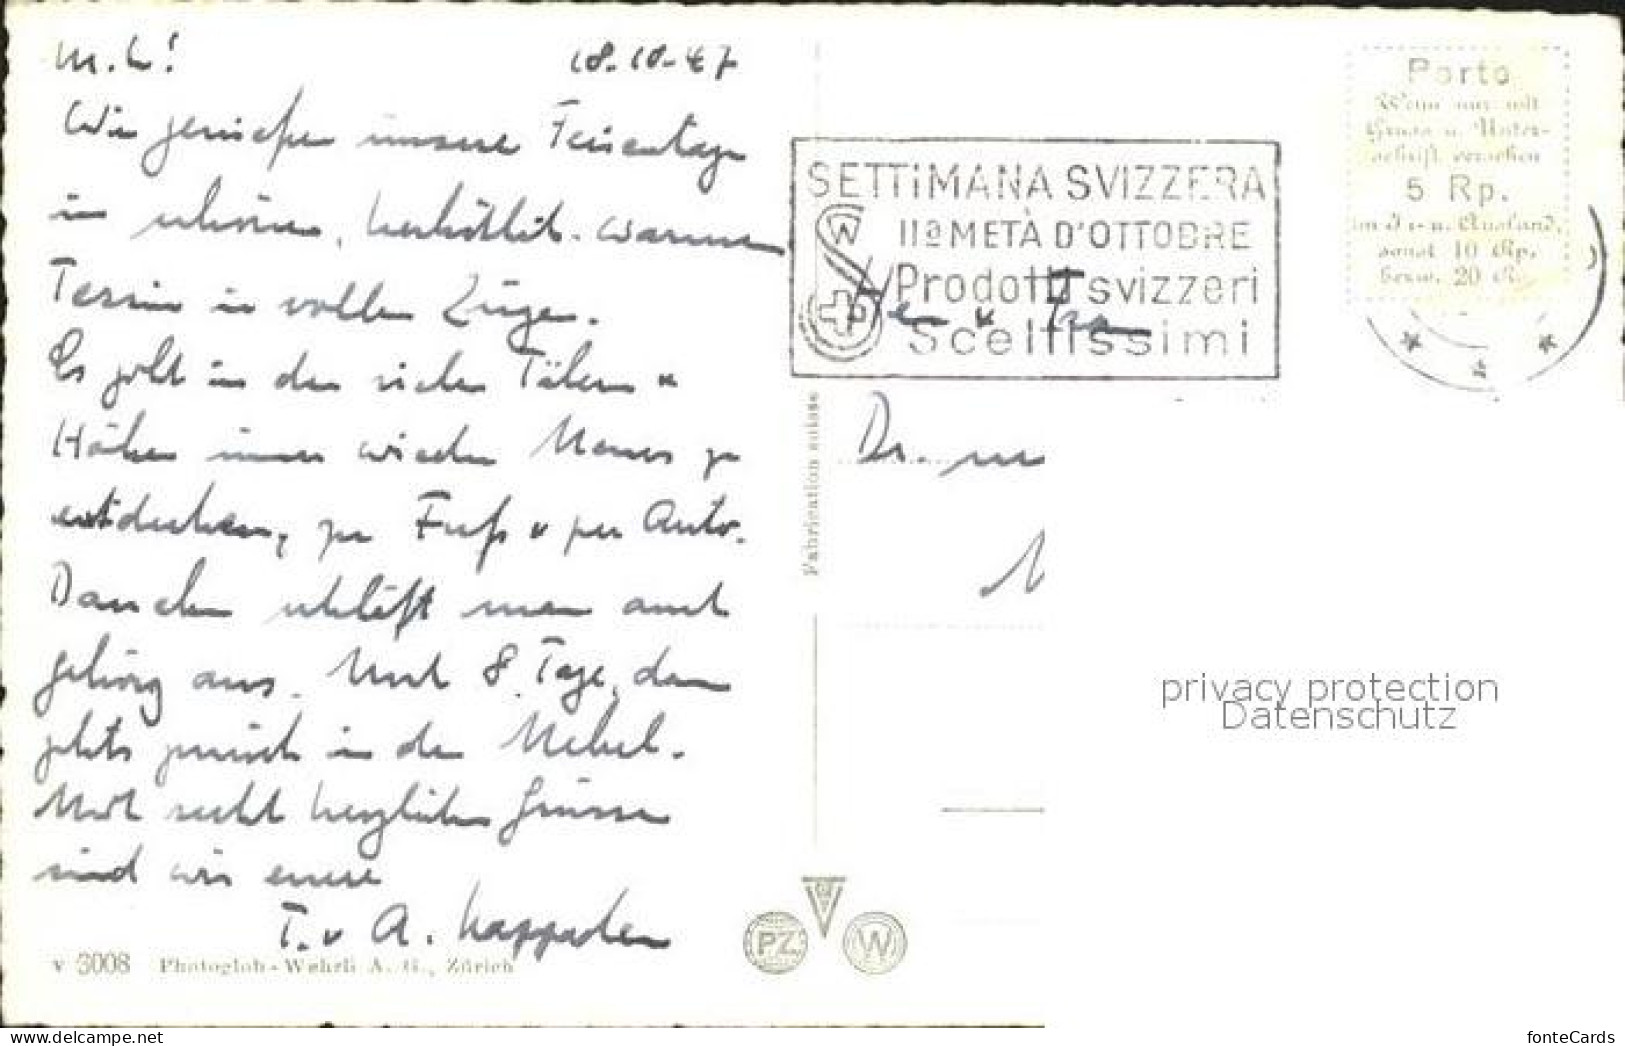 M. L!
18.10.47
Wir geniessen unsere Ferientage
in schönen, herbstlich-warmen
Tessin in vollen Zügen.
Es gibt in den vielen Tälern u
Höhen immer wieder Neues zu
entdecken, zu Fuss u per Auto.
Daneben schläft man auch
gehörig aus. Noch 8 Tage, dann
gehts zurück in den Nebel.
Mit recht herzlichen Grüssen
sind wir eure
T. u A.
v 3008 Photoglob-Wehrli A. G., Zürich
Fabrication suisse
PZ
W
SETTIMANA SVIZZERA
IIa METÀ D'OTTOBRE
Prodotti svizzeri
Sceltissimi
Porto
Wenn nur mit
Gruss u. Unter-
schrift versehen
5 Rp.
im I- u. Ausland,
sonst 10 Rp.
bezw. 20 R.
u
Dr.
privacy protection
Datenschutz
Delcampe.net
fonteCards